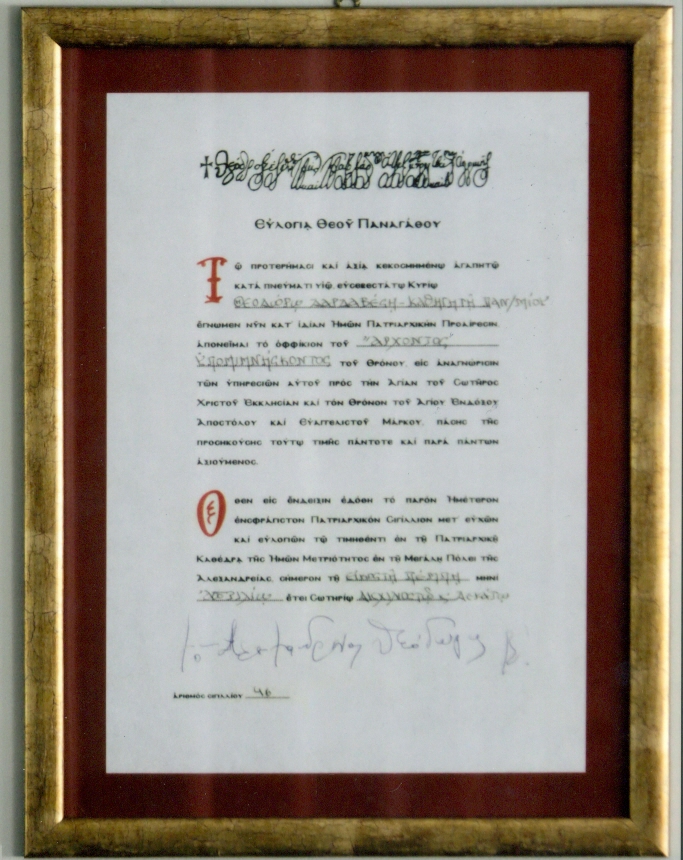 Εὐλογία Θεοῦ Παναγάθου
Τῷ προτερήμασι καὶ ἀξίᾳ κεκοσμημένῳ ἀγαπητῷ
κατὰ πνεῦμα υἱῷ, εὐσεβεστάτῳ Κυρίῳ
Θεοδώρῳ Δαρδαβέση - Καθηγητῇ Παν/μίου
ἔγνωμεν νῦν κατ' ἰδίαν Ἡμῶν Πατριαρχικὴν Προαίρεσιν
ἀπονεῖμαι τὸ ὀφφίκιον τοῦ "Ἄρχοντος
Ὑπομιμνήσκοντος τοῦ Θρόνου, εἰς ἀναγνώρισιν
τῶν ὑπηρεσιῶν αὐτοῦ πρὸς τὴν Ἁγίαν τοῦ Σωτῆρος
Χριστοῦ Ἐκκλησίαν καὶ τὸν Θρόνον τοῦ Ἁγίου Ἐνδόξου
Ἀποστόλου καὶ Εὐαγγελιστοῦ Μάρκου, πάσης τῆς
προσηκούσης τούτῳ τιμῆς πάντοτε καὶ παρὰ πάντων
ἀξιούμενος.
Ὅθεν εἰς ἔνδειξιν ἐδόθη τὸ παρὸν Ἡμέτερον
ἐνσφράγιστον Πατριαρχικὸν Σιγίλλιον μετ' εὐχῶν
καὶ εὐλογιῶν τῷ τιμηθέντι ἐν τῇ Πατριαρχικῇ
Καθέδρᾳ τῆς Ἡμῶν Μετριότητος ἐν τῇ Μεγάλῃ Πόλει τῆς
Ἀλεξανδρείας, σήμερον τῇ εἰκοστῇ πέμπτῃ μηνὶ
Ἀπριλίῳ ἔτει Σωτηρίῳ
ἀριθμὸς σιγιλλίου 46